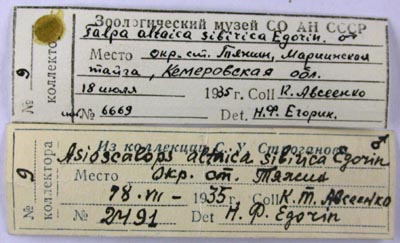 Зоологический музей СО АН СССР
Talpa altaica sibirica Egorin. ♂
Место окр. ст. Тяжин, Мариинская
тайга, Кемеровская обл.
18 июля 1935 г. Coll К. Авсеенко
№ 6669 Det. Н.Ф. Егорин.
№ 9
коллектора
Из коллекции С. У. Строганова
♂
Asioscalops altaica sibirica Egorin
Место Окр. ст. Тяжин
18-VII- 1935 г. Coll К. Т. Авсеенко
№ 2491 Det Н. Ф. Egorin
№ 9
коллектора